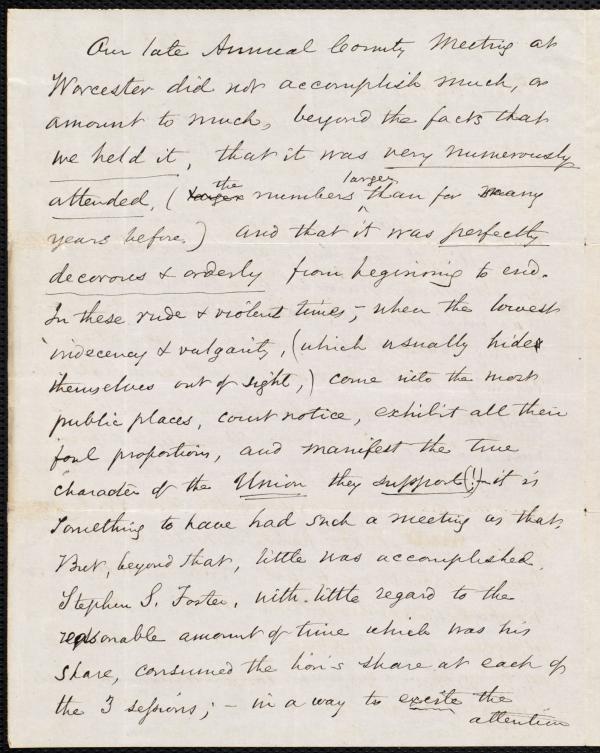 Our late Annual County Meeting at
Worcester did not accomplish much, or
amount to much, beyond the facts that
we held it, that it was very numerously
attended, (the numbers larger than for many
years before.) and that it was perfectly
decorous & orderly from beginning to end.
In these rude & violent times, when the lowest
indecency & vulgarity, (which usually hide
themselves out of sight,) come into the most
public places, court notice, exhibit all their
foul proportions, and manifest the true
character of the Union they support (!) – it is
something to have had such a meeting as that.
But, beyond that, little was accomplished.
Stephen S. Foster, with little regard to the
reasonable amount of time which was his
share, consumed the lion's share at each of
the 3 sessions; – in a way to excite the
attention